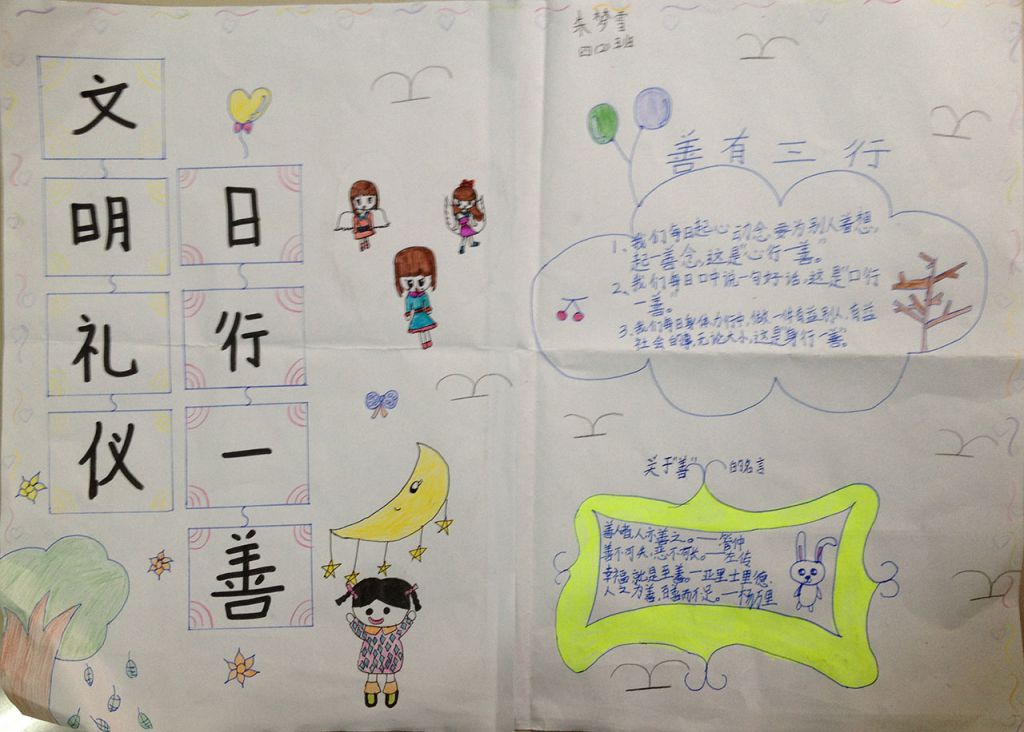 文明礼仪
日行一善
朱梦雪
四(2)班
善有三行
1、我们每日起心动念,要为别人善想,
起一善念,这是"心行一善"。
2、我们每日口中说一句好话,这是"口行
一善"
3、我们每日身体力行中,做一件有益别人、有益
社会的事,无论大小,这是身行一善"。
关于"善"的名言
善人者,人亦善之。——管仲
善不可失,恶不可长。——左传
幸福就是至善。—亚里士里德.
人之为善,百善而不足。—杨万里